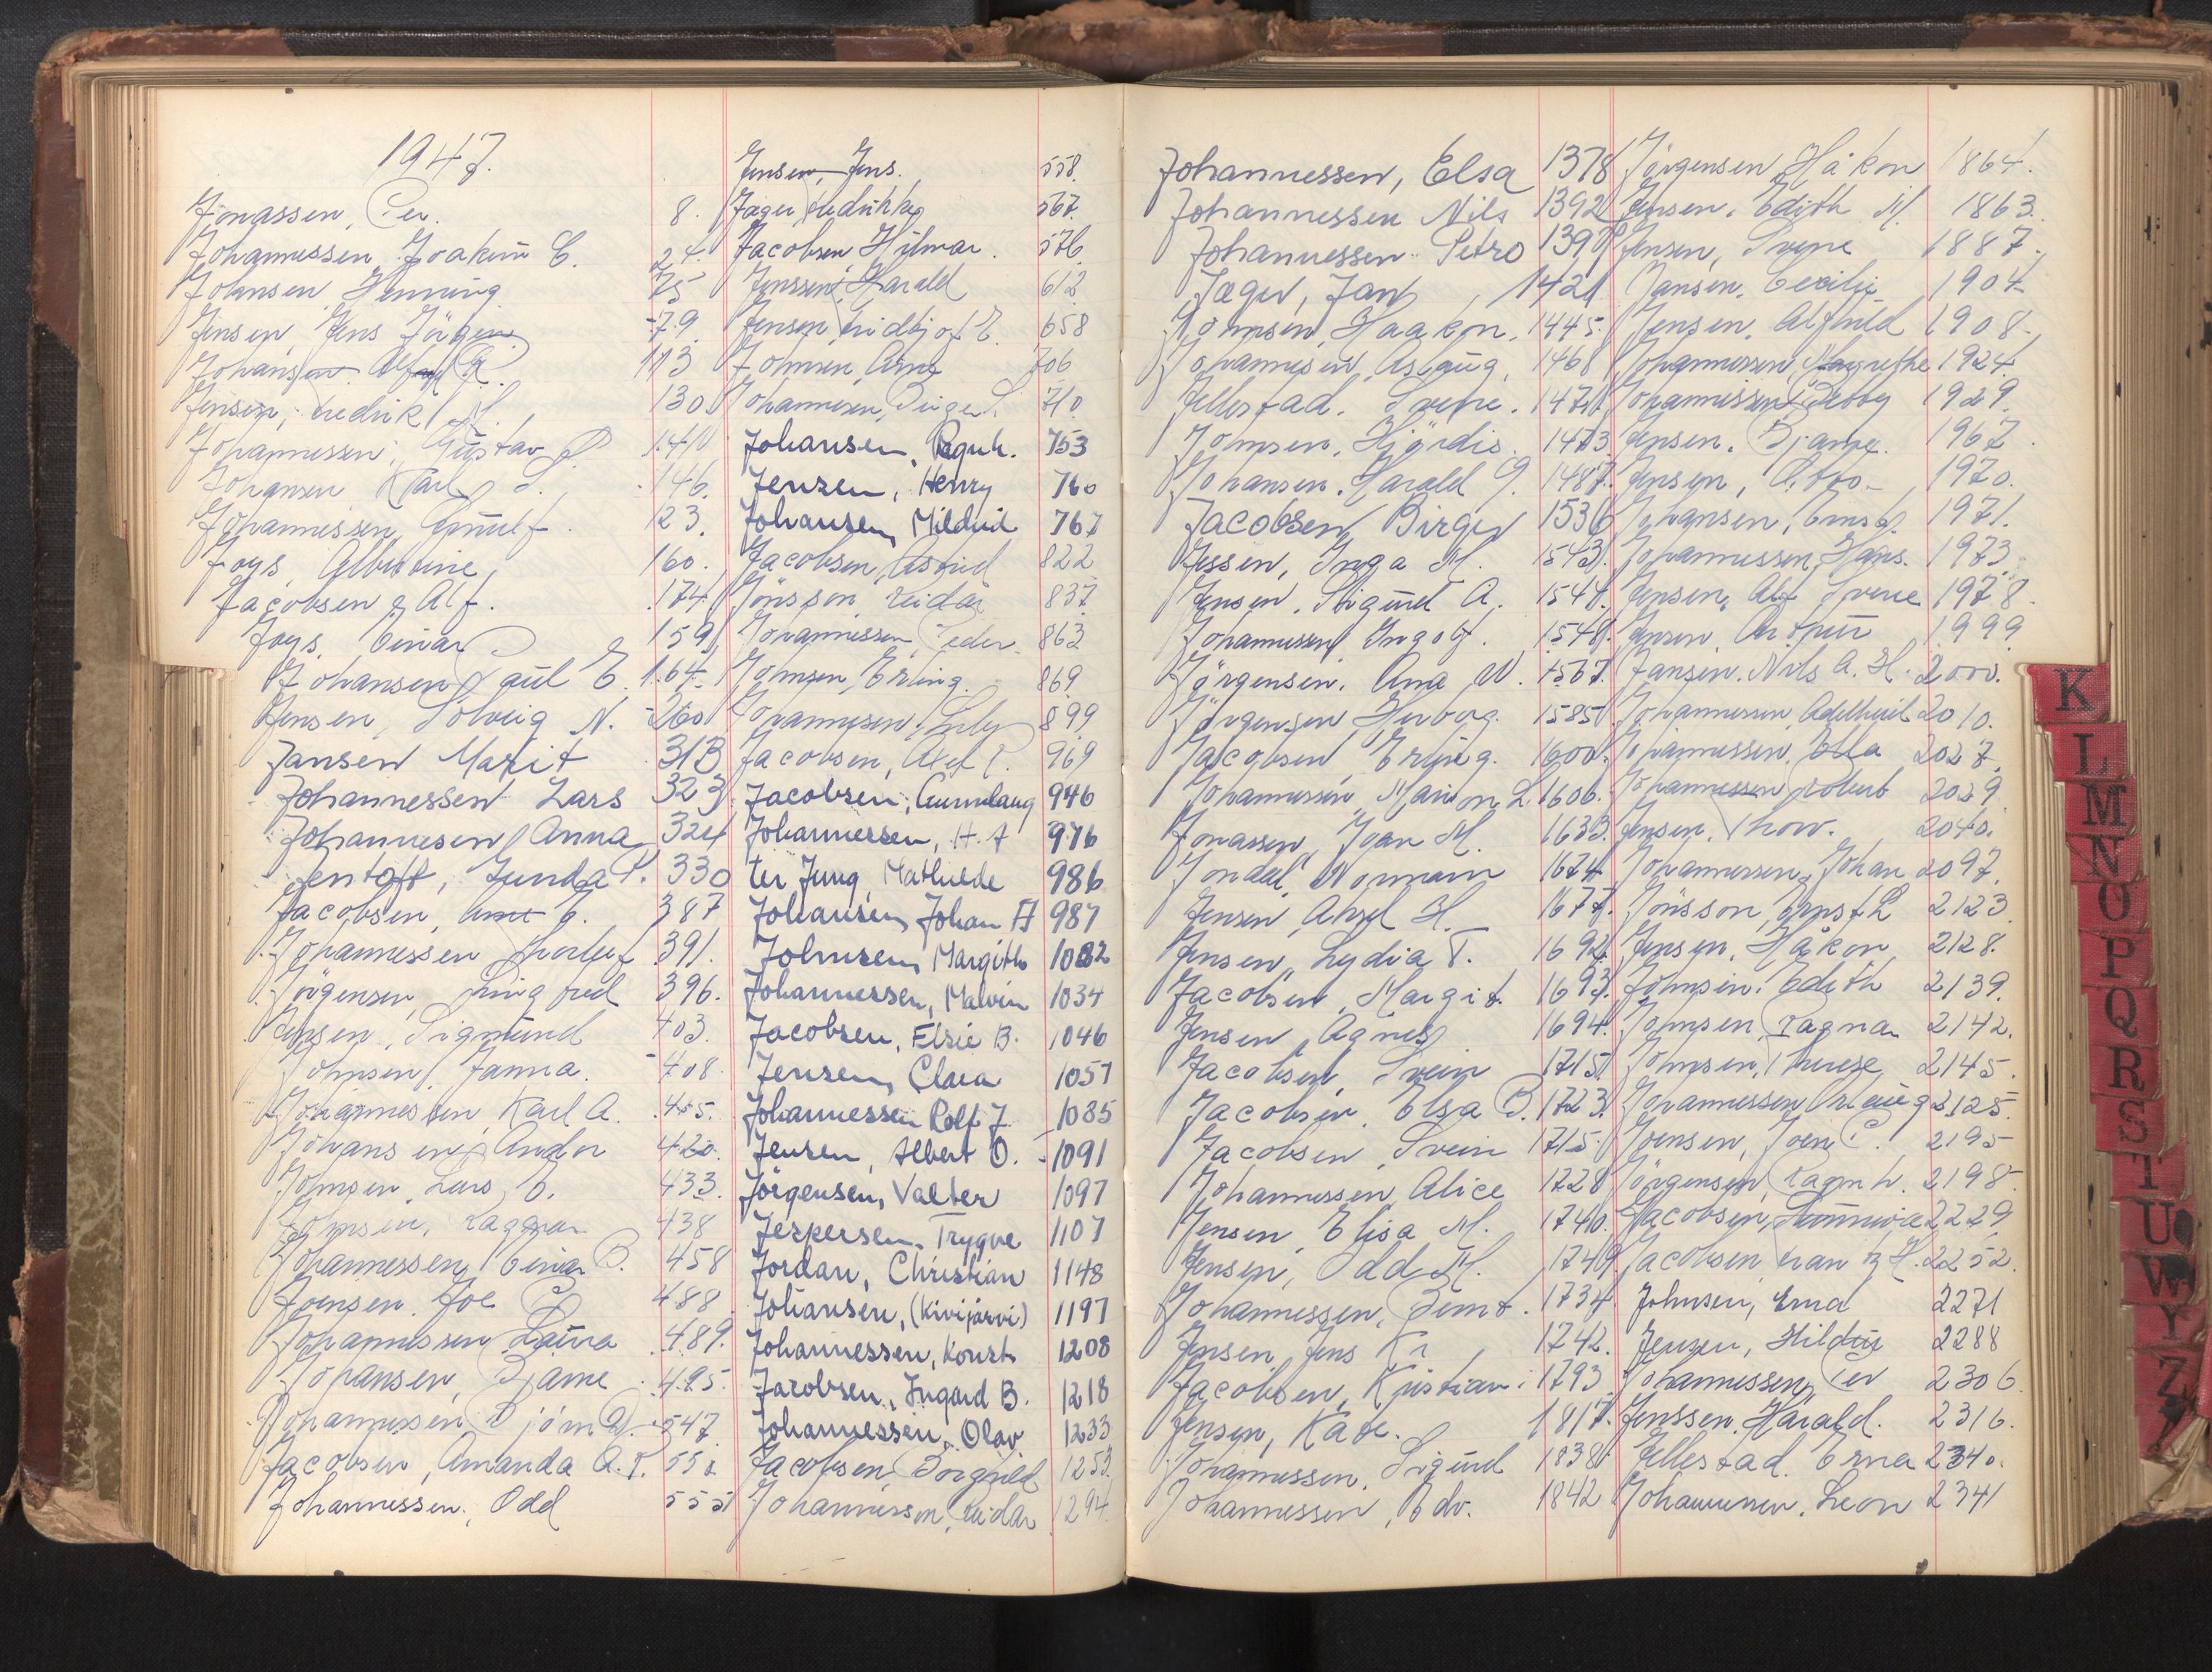 1947.
Jonassen, Per. 8.
Johannessen, Joakim C. 24
Johansen, Henning 75
Jensen, Jens Jörgen 79
Johansen 113
Jensen, Fredrik M. 130
Johannessen, Gustav 140
Johansen Karl S. 146.
Johannessen 123.
Joys, Albertine 160.
Jacobsen, Alf. 174
Joys, Einar 159
Johansen Paul E. 164
Jensen, Solveig N. 260
Jansen Marit 313
Johannessen Lars 323
Johannesen, Anna 324
Jentoft, Gunda P. 330
Jacobsen, E. 387
Johannessen Thorleif 391.
Jörgensen, Ingfred 396.
Jensen, Sigmund 403.
Johnsen, Janna. 408
Johannessen, Karl A. 415.
Johansen, Andor 420.
Johnsen, Lars E. 433.
Johnsen, Ragnar 438
Johannessen, Einar B. 458
Joensen, Joe P. 488
Johannessen Laura 489.
Johansen, Bjarne 495.
Johannessen, Björn 547
Jacobsen, Amanda A.T. 550
Johannessen, Odd 555
Jensen, Jens. 558.
Jæger 567.
Jacobsen Hilmar. 576.
Jenssen, Harald 612
Jensen, Fridtjof E. 658
Johnsen, Arne 706
Johannesen, Inger 710
Johansen, Ragnh. 753
Jensen, Henry 760
Johansen, Mildrid 767
Jacobsen, Astrid 822
Jönsson, Reidar 837
Johannessen, Peder 863
Johnsen, Erling. 869
Johannesen, Lily 899
Jacobsen, Axel P. 969
Jacobsen, Gunnlaug 946
Johannessen, H. A 976
ter Jung, Mathilde 986
Johansen, Johan A 987
Johnsen, Margith 1032
Johannessen, Malvin 1034
Jacobsen, Elsie B. 1046
Jensen, Clara 1057
Johannessen Rolf J. 1085
Jensen, Albert O. 1091
Jörgensen, Valter 1097
Jespersen, Trygve 1107
Jordan, Christian 1148
Johansen, (Kivijärvi) 1197
Johannessen, Konst. 1208
Jacobsen, Ingard B. 1218
Johannessen, Olav 1233
Jacobsen, Borghild 1253.
Johannessen, Reidar 1294.
Johannessen, Elsa 1378
Johannessen Nils 1392
Johannessen Petro 1397
Jæger, Jan 1421
Johnsen, Haakon. 1445.
Johannesen, Aslaug. 1468
Jellestad. Sverre. 1471
Johnsen, Hjördis. 1473
Johansen. Harald G. 1487.
Jacobsen, Birger 1536
Jessen, Inga M. 1543.
Jensen, Stigurd A. 1544.
Johannessen, Ingolf. 1548.
Jörgensen. Ana W. 1567.
Jörgensen Herborg. 1585
Jacobsen, Erling. 1600.
Johannessen, Marion L. 1606.
Jonassen, Ivan M. 1633.
Jondal, Normann 1674.
Jensen, Aksel H. 1677.
Jensen, Lydia T. 1692.
Jacobsen, Margit. 1693.
Jensen, Agnes 1694.
Jacobsen, Svein 1715.
Jacobsen, Elsa B. 1723.
Jacobsen, Svein 1715.
Johannessen, Alice 1728
Jensen, Elisa M. 1740.
Jensen, Odd M. 1749
Johannessen, Bernt. 1734.
Jensen, Jens Kr 1742.
Jacobsen, Kristian. 1793
Jensen, Kåre. 1817.
Johannessen, Sigurd 1838
Johannessen, Edv. 1842
Jörgensen, Håkon 1864.
Jensen, Edith M. 1863.
Jensen, Sverre 1887.
Jansen. Cecilie 1904
Jensen. Alfhild 1908.
Johannessen, Margrethe 1924.
Johannessen, Debby 1929.
Jensen, Bjarne. 1967.
Jensen, 1970.
Johansen, Ernst 1971.
Johannessen, Hans. 1973.
Jensen, Alf Sverre 1978.
Jensen, Arthur 1999
Jansen. Nils A. H. 2000.
Johannessen Adelheid 2010.
Johannessen, Ella 2027.
Johannessen Robert 2029
Jensen, Thorv. 2040.
Johannessen, Johan 2097.
Jönsson, Ernst L 2123
Jensen, Håkon 2128.
Johnsen, Edith 2139.
Johnsen, Ragna 2142.
Johnsen, Therese 2145.
Johannessen, 2125.
Joensen, Joen P. 2195
Jörgensen, Ragnh. 2198
Jacobsen, Sunniva 2229
Jacobsen Frantz H. 2252.
Johnsen, Erna 2271
Jensen, Hildur 2288
Johannessen, Per 2306
Jenssen, Harald. 2316.
Jellestad. Erna 2340.
Johannessen, Leon 2341
K
L
M
N
O
P
Q
R
S
T
U
W
Y
Z